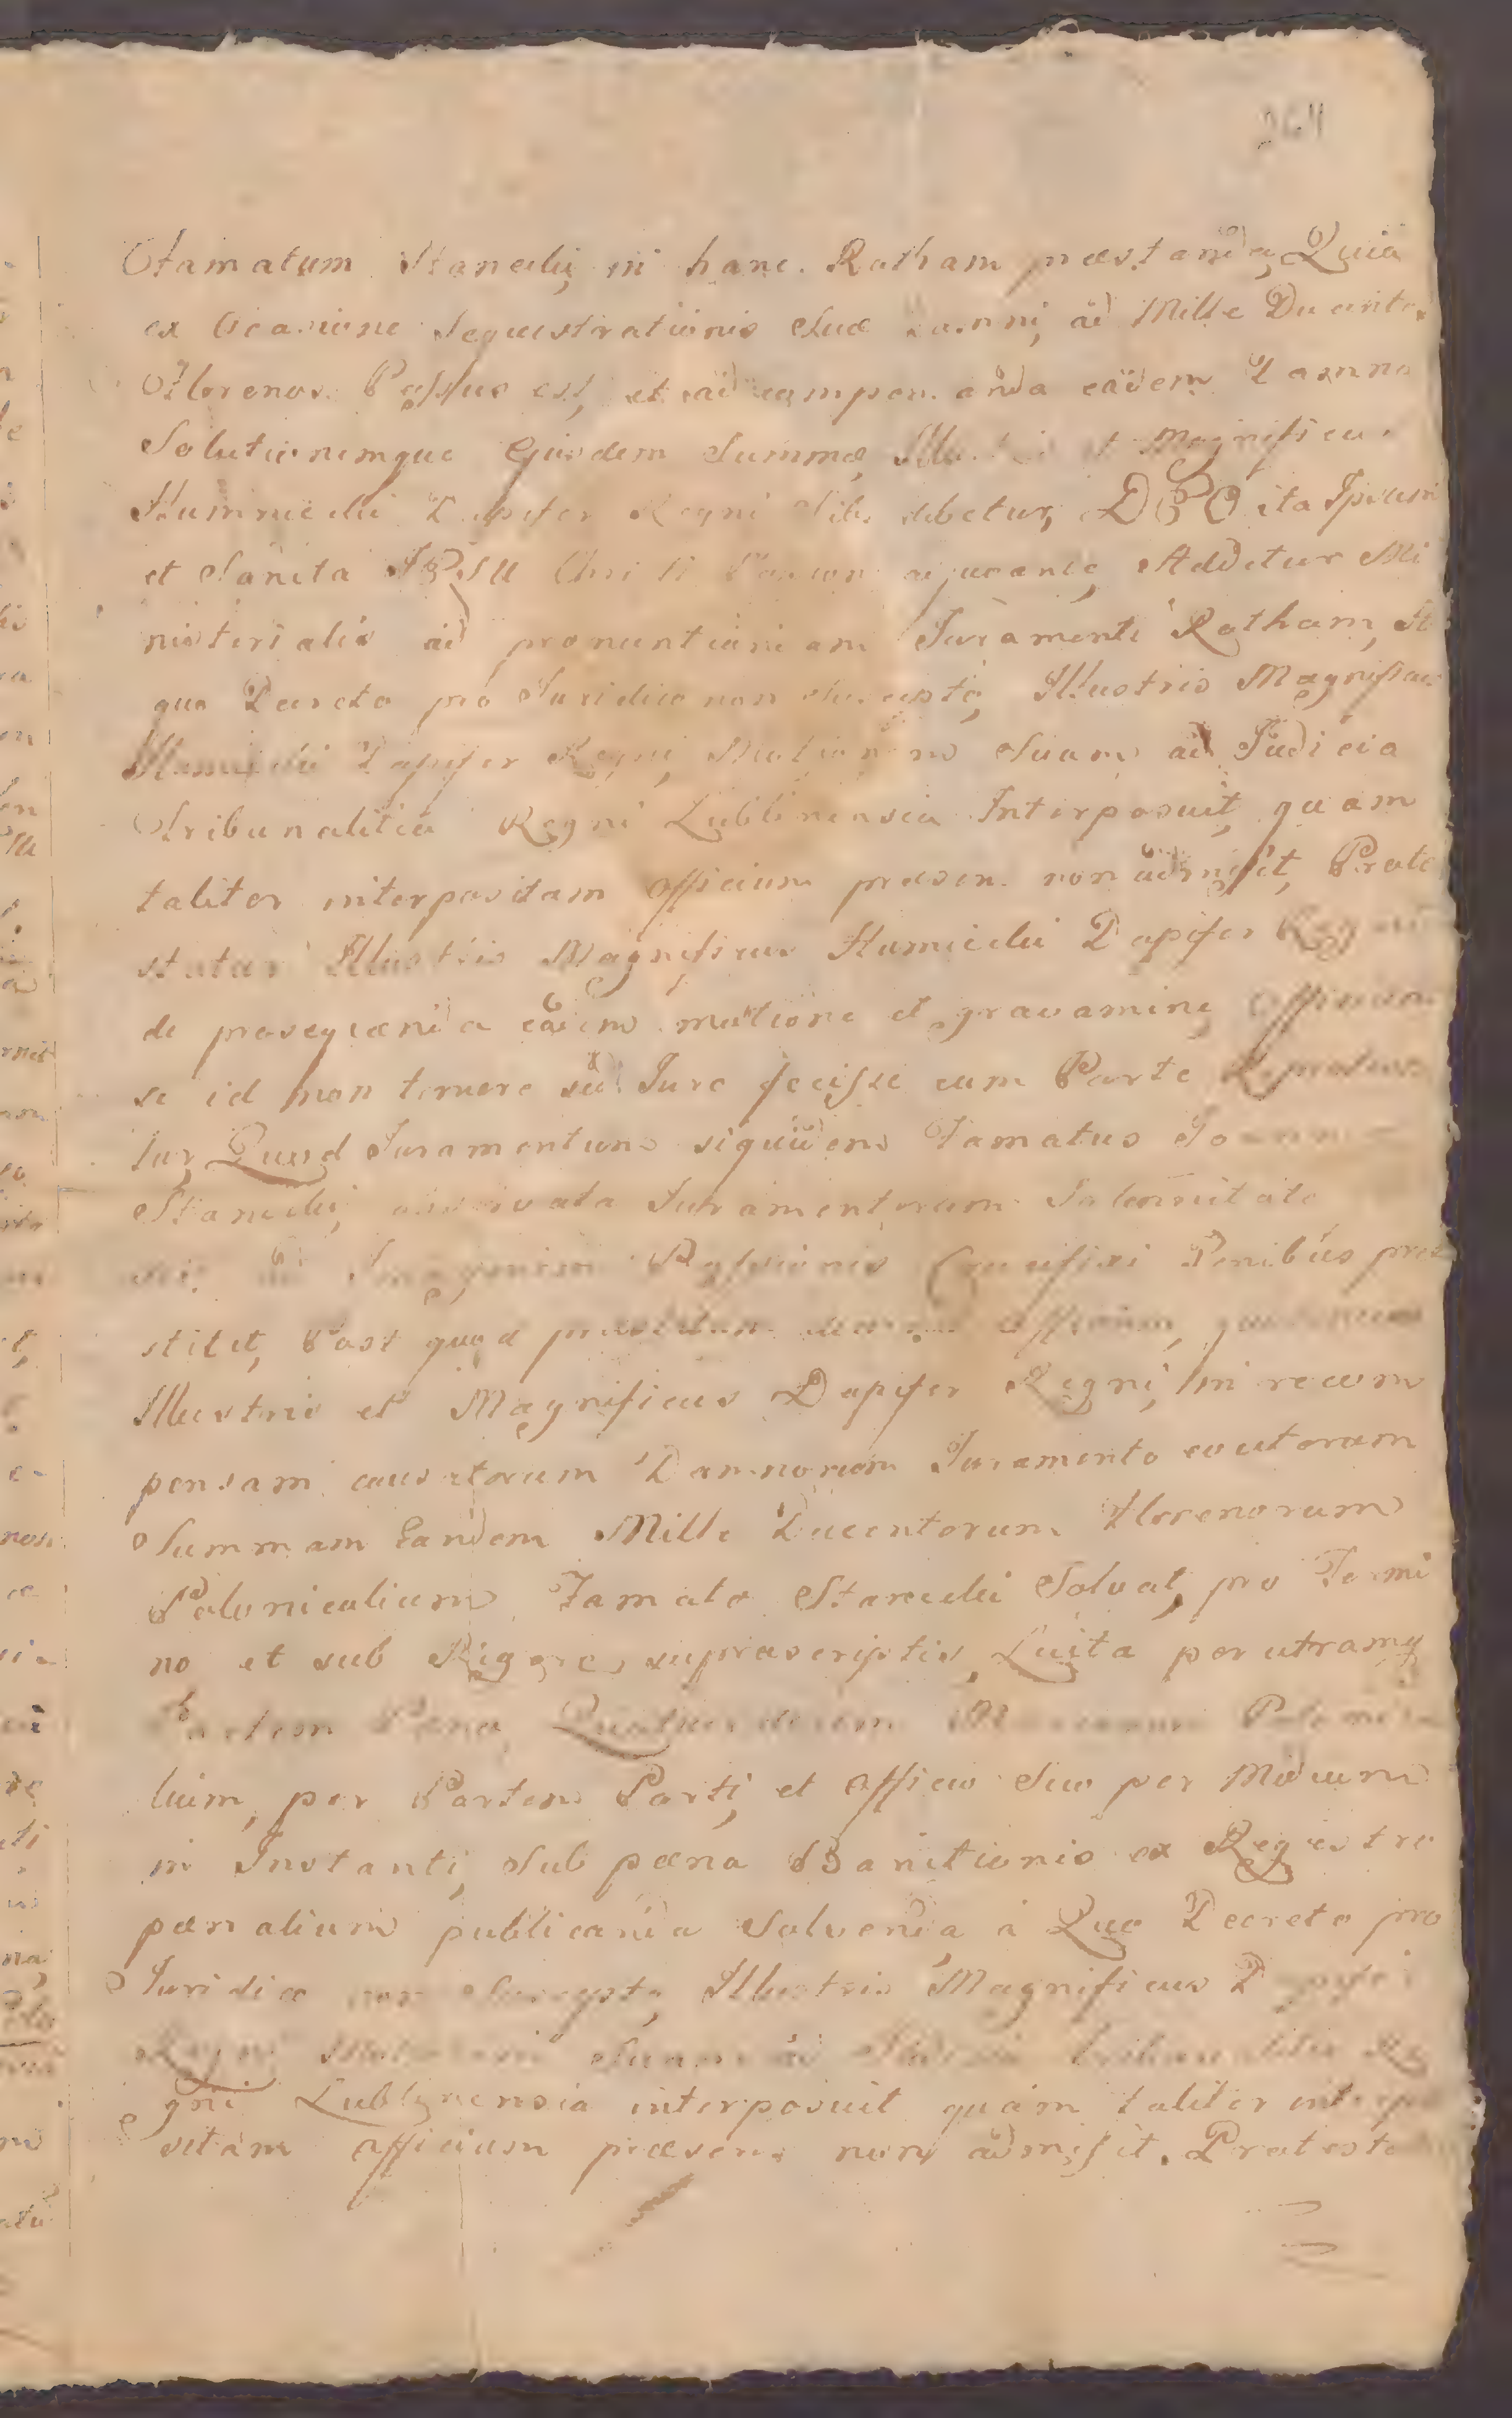 264
Famatum Stanecki, in hanc Rotham praestanda, Quia
ex Occasione Sequestrationis Suae Damni, ad Mille Ducentos
Florenos Passus est, et ad compen. anda eadem Damna
Solutionemque Ejusdem Summae Illustris et Magnificus
Humiecki Dapifer Regni Sibi debetur, DEO ita Ipsum
et Sancta JESU Christi Passione adjuvante, Addetur Mi
nisterialis ad pronuntiandam Juramenti Rotham, A
quo Decreto pro Juridico non Suscepto, Illustris Magnificus
Humiecki Dapifer Regni, Motionem Suam ad Judicia
Tribunalitia Regni Lublinensia Interposuit, quam
taliter interpositam Officium praesen. non admisit, Prote
statur Illustris Magnificus Humiecki Dapifer Regni
de prosequenda eadem motione et gravamine, Officium
se id non temere sed Jure fecisse cum Parte
tur, Quod Juramentum siquidem Famatus
Stanecki, observata Juramentorum Solennitate
Imaginem Passionis Crucifixi Penibus prae
stitit, Post quod praestitum Officium,
Illustris et Magnificus Dapifer Regni, in recom
pensam causatorum Damnorum Juramento evictorum
Summam Eandem Mille Ducentorum Florenorum
Polonicalium Famato Stanecki Solvat, pro Termi
no et sub Rigore, suprascriptis, Luita per utramq
Partem Paena Quatuordecim Marcarum Poloni
lium, per Partem Parti, et Officio Suo per Medium
in Instanti, Sub paena Banitionis ex Regestro
paenalium publicanda Solvenda, à Quo Decreto pro
Juridico non Suscepto, Illustris Magnificus Dapifer
Regni Motionem Suam ad Judicia Tribunalitia Re
gni Lublinensia interposuit quam taliter interpo
sitam Officium praesens non admisit. Protesta